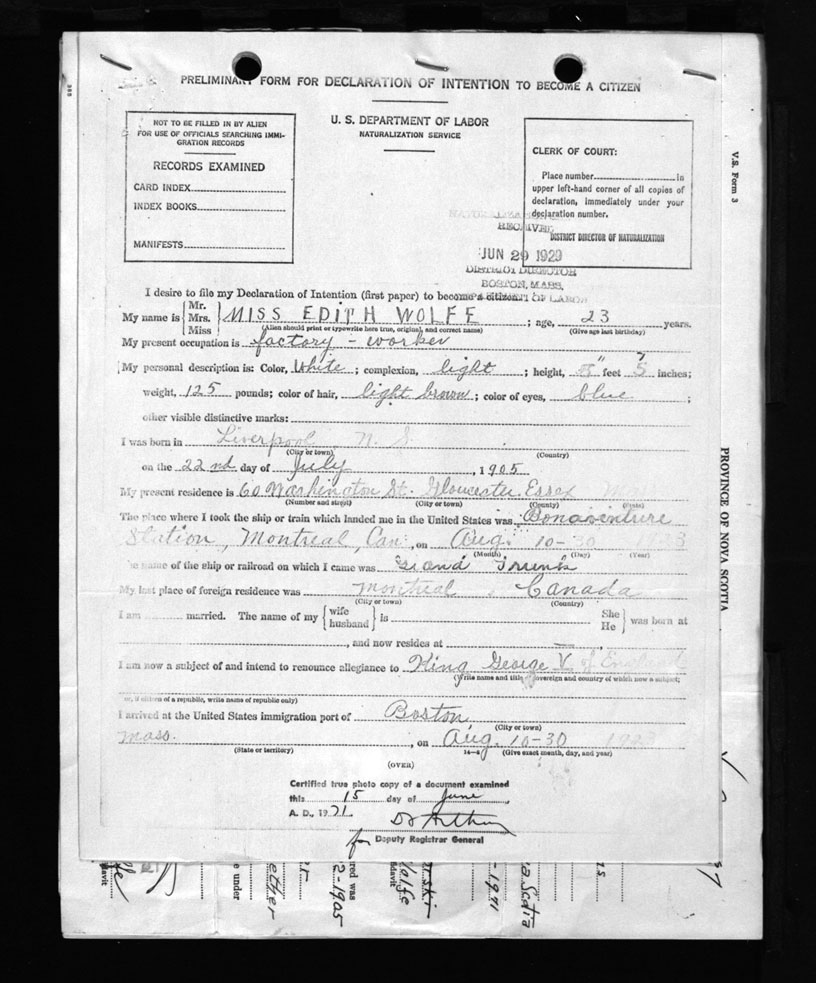 PRELIMINARY FORM FOR DECLARATION OF INTENTION TO BECOME A CITIZEN
U. S. DEPARTMENT OF LABOR
NATURALIZATION SERVICE
NOT TO BE FILLED IN BY ALIEN
FOR USE OF OFFICIALS SEARCHING IMMI-
GRATION RECORDS
RECORDS EXAMINED
CARD INDEX
INDEX BOOKS
MANIFESTS
CLERK OF COURT:
Place number in
upper left-hand corner of all copies of
declaration, immediately under your
declaration number.
DISTRICT DIRECTOR OF NATURALIZATION
RECEIVED
JUN 29 1929
DISTRICT DIRECTOR
BOSTON, MASS.
OF LABOR
I desire to file my Declaration of Intention (first paper) to become a citizen
My name is Mr. Mrs. Miss MISS EDITH WOLFE ; age, 23 years.
(Alien should print or typewrite here true, original, and correct name) (Give age last birthday)
My present occupation is factory - worker
My personal description is: Color, White ; complexion, light ; height, feet 5 inches;
weight, 125 pounds; color of hair, light brown ; color of eyes, blue ;
other visible distinctive marks:
I was born in Liverpool N. S.
(City or town) (Country)
on the 22nd day of July , 1905
My present residence is 60 Washington St. Gloucester Essex
(Number and street) (City or town) (County) (State)
The place where I took the ship or train which landed me in the United States was Bonaventure
Station, Montreal, Can. , on Aug. 10-30
(Month) (Day) (Year)
name of the ship or railroad on which I came was Grand Trunk
My last place of foreign residence was Montreal , Canada
(City or town) (Country)
I am married. The name of my wife husband is She He was born at
, and now resides at
I am now a subject of and intend to renounce allegiance to King George V of England
(Write name and title of sovereign and country of which now a subject;
or, if citizen of a republic, write name of republic only)
I arrived at the United States immigration port of Boston
(City or town)
Mass. , on Aug. 10-30
(State or territory) 14-8 (Give exact month, day, and year)
(OVER)
Certified true photo copy of a document examined
this 15 day of June
A. D., 1971.
for Deputy Registrar General
V.S. Form 3
PROVINCE OF NOVA SCOTIA
under
ether
2-1905
-1971